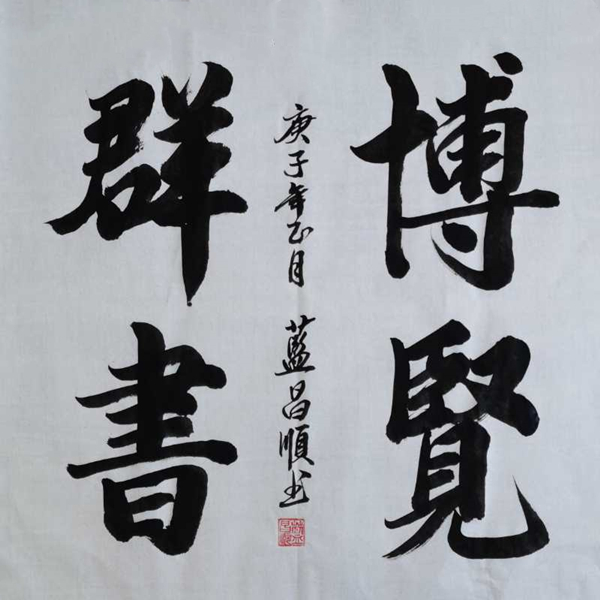 博覽
群書
庚子年正月 藍昌順书